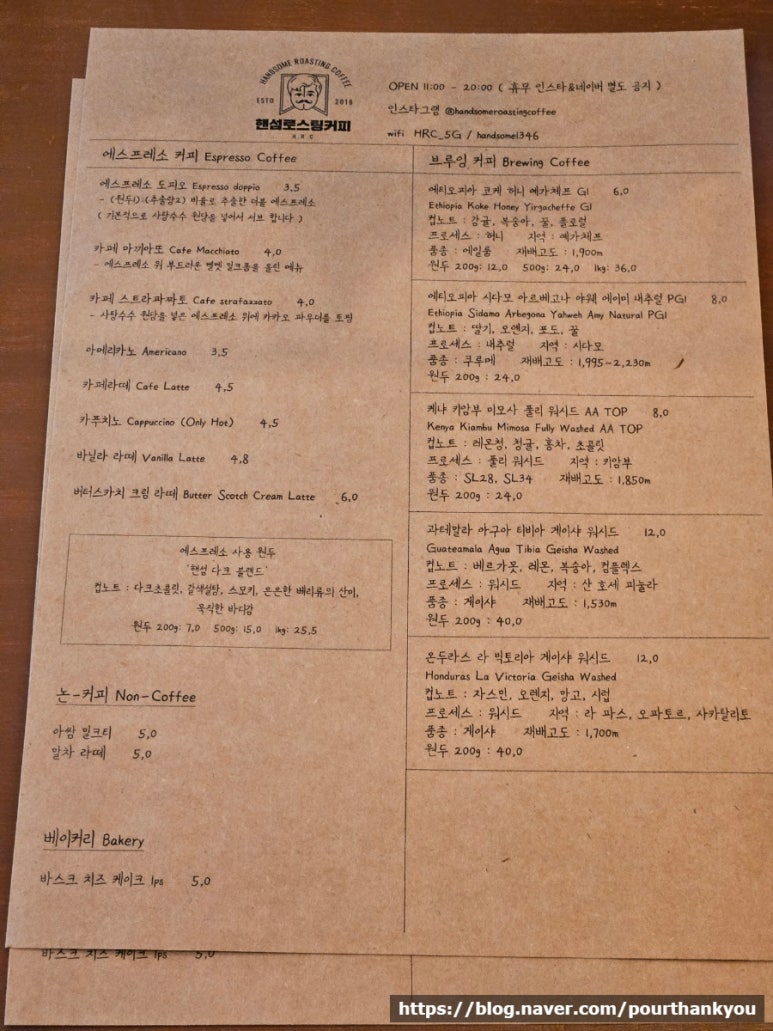 HANDSOME ROASTING COFFEE
ESTD 2018
핸섬로스팅커피
H R C
OPEN 11:00 - 20:00 ( 휴무 인스타&네이버 별도 공지 )
인스타그램 @handsomeroastingcoffee
wifi HRC_5G / handsome1346
에스프레소 커피 Espresso Coffee
에스프레소 도피오 Espresso doppio 3,5
- (원두1):(추출량2) 비율로 추출한 더블 에스프레소
( 기본적으로 사탕수수 원당을 넣어서 서브 합니다 )
카페 마끼아또 Cafe Macchiato 4,0
- 에스프레소 위 부드러운 벨벳 밀크폼을 올린 메뉴
카페 스트라파짜토 Cafe strafazzato 4,0
- 사탕수수 원당을 넣은 에스프레소 위에 카카오 파우더를 토핑
아메리카노 Americano 3,5
카페라떼 Cafe Latte 4,5
카푸치노 Cappuccino (Only Hot) 4,5
바닐라 라떼 Vanilla Latte 4,8
버터스카치 크림 라떼 Butter Scotch Cream Latte 6,0
에스프레소 사용 원두
'핸섬 다크 블렌드'
컵노트 : 다크초콜릿, 갈색설탕, 스모키, 은은한 베리류의 산미,
묵직한 바디감
원두 200g: 7,0 500g: 15,0 1kg: 25,5
논-커피 Non-Coffee
아쌈 밀크티 5,0
말차 라떼 5,0
베이커리 Bakery
바스크 치즈 케이크 1ps 5,0
브루잉 커피 Brewing Coffee
에티오피아 코케 허니 예가체프 G1 6,0
Ethiopia Koke Honey Yirgacheffe G1
컵노트 : 감귤, 복숭아, 꿀, 플로럴
프로세스 : 허니 지역 : 예가체프
품종 : 에일룸 재배고도 : 1,900m
원두 200g: 12,0 500g: 24,0 1kg: 36,0
에티오피아 시다모 아르베고나 야웨 에이미 내추럴 PG1 8,0
Ethiopia Sidama Arbegona Yahweh Amy Natural PG1
컵노트 : 딸기, 오렌지, 포도, 꿀
프로세스 : 내추럴 지역 : 시다모
품종 : 쿠루메 재배고도 : 1,995-2,230m
원두 200g : 24,0
케냐 키암부 미모사 풀리 워시드 AA TOP 8,0
Kenya Kiambu Mimosa Fully Washed AA TOP
컵노트 : 레몬청, 청귤, 홍차, 초콜릿
프로세스 : 풀리 워시드 지역 : 키암부
품종 : SL28, SL34 재배고도 : 1,850m
원두 200g : 24,0
과테말라 아구아 티비아 게이샤 워시드 12,0
Guateamala Agua Tibia Geisha Washed
컵노트 : 베르가못, 레몬, 복숭아, 컴플렉스
프로세스 : 워시드 지역 : 산 호세 피눌라
품종 : 게이샤 재배고도 : 1,530m
원두 200g : 40,0
온두라스 라 빅토리아 게이샤 워시드 12,0
Honduras La Victoria Geisha Washed
컵노트 : 자스민, 오렌지, 망고, 시럽
프로세스 : 워시드 지역 : 라 파스, 오파토르, 사카탈리토
품종 : 게이샤 재배고도 : 1,700m
원두 200g : 40,0
바스크 치즈 케이크 1ps 5,0
https://blog.naver.com/pourthankyou